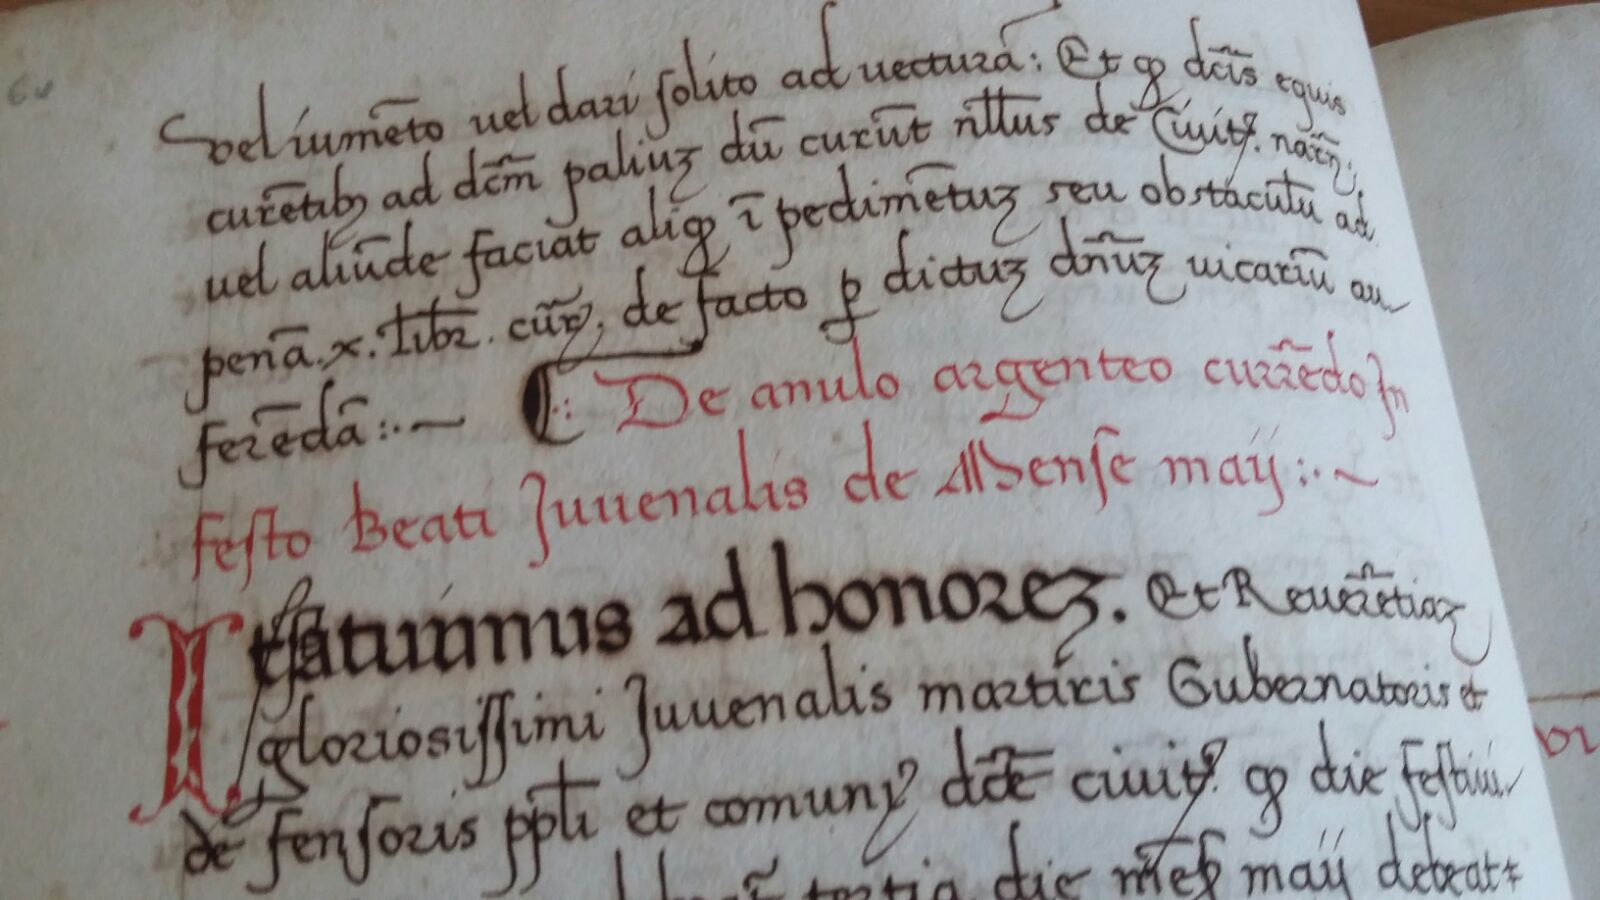 vel iumēto uel dari solito ad uecturā: Et ꝙ dc̄is equis
curētibꝫ ad dc̄m paliuꝫ dū currūt nllus de Ciuitᵉ. narn̄.
uel aliūde faciat aliqꝙ īpedimētuꝫ seu obstaculū ad
penā .x. libr. cur̄, de facto ꝑ dictuꝫ dn̄uꝫ uicariū au
ferēdā :·~ De anulo argenteo currēdo In
festo Beati Juuenalis de Mense maij :·~
Itē statuimus ad honoreꝫ. Et Reuerētiaꝫ
gloriosissimi Juuenalis martiris Gubernatoris et
defensoris ppli et comunꝭ dc̄e ciuitꝭ ꝙ die festiui
tertia die mēs maij debeat